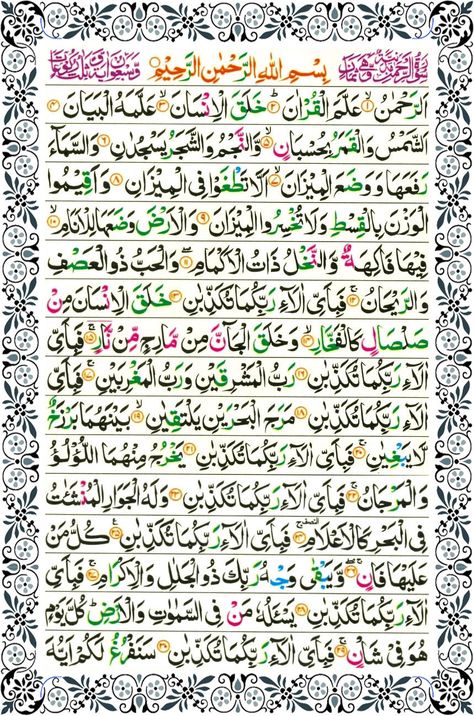 بِسْمِ اللهِ الرَّحْمٰنِ الرَّحِيْمِ
اَلرَّحْمٰنُ ۙ﴿۱﴾ عَلَّمَ الْقُرْاٰنَ ؕ﴿۲﴾ خَلَقَ الْاِنْسَانَ ۙ﴿۳﴾ عَلَّمَهُ الْبَيَانَ ﴿۴﴾
اَلشَّمْسُ وَالْقَمَرُ بِحُسْبَانٍ ۪﴿۵﴾ وَّالنَّجْمُ وَالشَّجَرُ يَسْجُدٰنِ ﴿۶﴾ وَالسَّمَآءَ
رَفَعَهَا وَوَضَعَ الْمِيْزَانَ ۙ﴿۷﴾ اَلَّا تَطْغَوْا فِى الْمِيْزَانِ ﴿۸﴾ وَاَقِيْمُوا
الْوَزْنَ بِالْقِسْطِ وَلَا تُخْسِرُوا الْمِيْزَانَ ﴿۹﴾ وَالْاَرْضَ وَضَعَهَا لِلْاَنَامِ ۙ﴿۱۰﴾
فِيْهَا فَاكِهَةٌ ۪ۙ وَّالنَّخْلُ ذَاتُ الْاَكْمَامِ ۖ﴿۱۱﴾ وَالْحَبُّ ذُو الْعَصْفِ
وَالرَّيْحَانُ ۚ﴿۱۲﴾ فَبِاَىِّ اٰلَآءِ رَبِّكُمَا تُكَذِّبٰنِ ﴿۱۳﴾ خَلَقَ الْاِنْسَانَ مِنْ
صَلْصَالٍ كَالْفَخَّارِ ۙ﴿۱۴﴾ وَخَلَقَ الْجَآنَّ مِنْ مَّارِجٍ مِّنْ نَّارٍ ۚ﴿۱۵﴾ فَبِاَىِّ
اٰلَآءِ رَبِّكُمَا تُكَذِّبٰنِ ﴿۱۶﴾ رَبُّ الْمَشْرِقَيْنِ وَرَبُّ الْمَغْرِبَيْنِ ۚ﴿۱۷﴾ فَبِاَىِّ
اٰلَآءِ رَبِّكُمَا تُكَذِّبٰنِ ﴿۱۸﴾ مَرَجَ الْبَحْرَيْنِ يَلْتَقِيٰنِ ۙ﴿۱۹﴾ بَيْنَهُمَا بَرْزَخٌ
لَّا يَبْغِيٰنِ ۚ﴿۲۰﴾ فَبِاَىِّ اٰلَآءِ رَبِّكُمَا تُكَذِّبٰنِ ﴿۲۱﴾ يَخْرُجُ مِنْهُمَا اللُّؤْلُؤُ
وَالْمَرْجَانُ ۚ﴿۲۲﴾ فَبِاَىِّ اٰلَآءِ رَبِّكُمَا تُكَذِّبٰنِ ﴿۲۳﴾ وَلَهُ الْجَوَارِ الْمُنْشَئٰتُ
فِى الْبَحْرِ كَالْاَعْلَامِ ۚ﴿۲۴﴾ فَبِاَىِّ اٰلَآءِ رَبِّكُمَا تُكَذِّبٰنِ ﴿۲۵﴾ كُلُّ مَنْ
عَلَيْهَا فَانٍ ۖ﴿۲۶﴾ وَّيَبْقٰى وَجْهُ رَبِّكَ ذُو الْجَلٰلِ وَالْاِكْرَامِ ۚ﴿۲۷﴾ فَبِاَىِّ
اٰلَآءِ رَبِّكُمَا تُكَذِّبٰنِ ﴿۲۸﴾ يَسْئَلُهٗ مَنْ فِى السَّمٰوٰتِ وَالْاَرْضِ ؕ كُلَّ يَوْمٍ
هُوَ فِىْ شَاْنٍ ۚ﴿۲۹﴾ فَبِاَىِّ اٰلَآءِ رَبِّكُمَا تُكَذِّبٰنِ ﴿۳۰﴾ سَنَفْرُغُ لَكُمْ اَيُّهَ